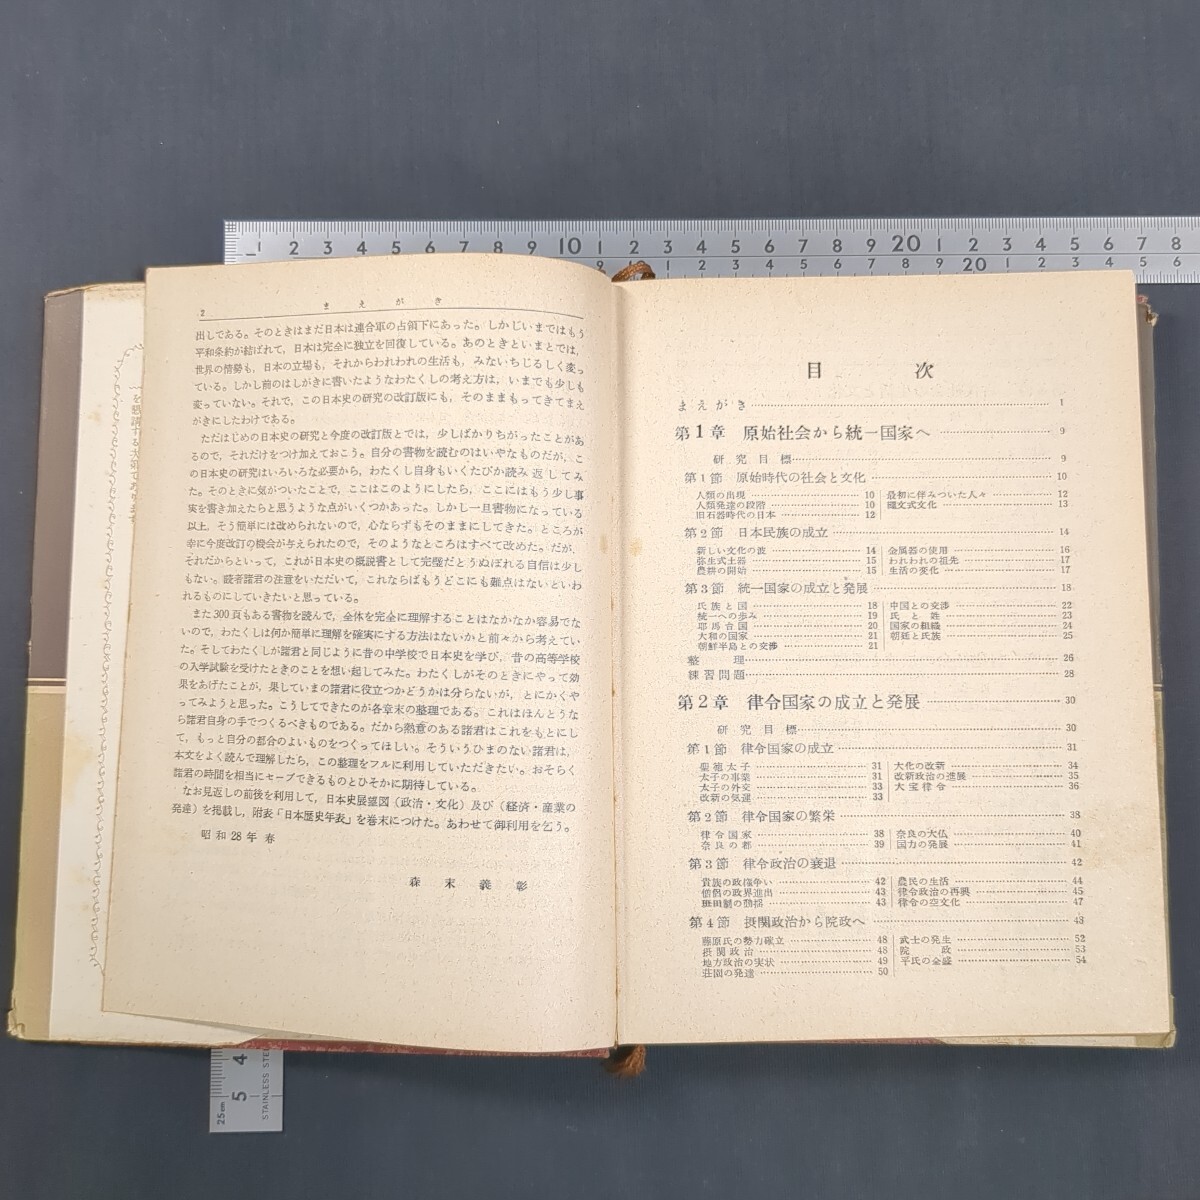 2 まえがき
出しである。そのときはまだ日本は連合軍の占領下にあった。しかしいまではもう
平和条約が結ばれて，日本は完全に独立を回復している。あのときといまとでは，
世界の情勢も，日本の立場も，それからわれわれの生活も，みないちじるしく変っ
ている。しかし前のはしがきに書いたようなわたくしの考え方は，いまでも少しも
変っていない。それで，この日本史の研究の改訂版にも，そのままもってきてまえ
がきにしたわけである。
ただはじめの日本史の研究と今度の改訂版とでは，少しばかりちがったことがあ
るので，それだけをつけ加えておこう。自分の書物を読むのはいやなものだが，こ
の日本史の研究はいろいろな必要から，わたくし自身もいくたびか読み返してみ
た。そのときに気がついたことで，ここはこのようにしたら，ここにはもう少し事
実を書き加えたらと思うような点がいくつかあった。しかし一旦書物になっている
以上，そう簡単には改められないので，心ならずもそのままにしてきた。ところが
幸に今度改訂の機会が与えられたので，そのようなところはすべて改めた。だが，
それだからといって，これが日本史の概説書として完璧だとうぬぼれる自信は少し
もない。読者諸君の注意をいただいて，これならばもうどこにも難点はないといわ
れるものにしていきたいと思っている。
また300頁もある書物を読んで，全体を完全に理解することはなかなか容易でな
いので，わたくしは何か簡単に理解を確実にする方法はないかと前々から考えてい
た。そしてわたくしが諸君と同じように昔の中学校で日本史を学び，昔の高等学校
の入学試験を受けたときのことを想い起してみた。わたくしがそのときにやって効
果をあげたことが，果していまの諸君に役立つかどうかは分らないが，とにかくや
ってみようと思った。こうしてできたのが各章末の整理である。これはほんとうな
ら諸君自身の手でつくるべきものである。だから熱意のある諸君はこれをもとにし
て，もっと自分の都合のよいものをつくってほしい。そういうひまのない諸君は，
本文をよく読んで理解したら，この整理をフルに利用していただきたい。おそらく
諸君の時間を相当にセーブできるものとひそかに期待している。
なお見返しの前後を利用して，日本史展望図（政治・文化）及び（経済・産業の
発達）を掲載し，附表「日本歴史年表」を巻末につけた。あわせて御利用を乞う。
昭和28年 春
森末義彰
目次
まえがき 1
第1章 原始社会から統一国家へ 9
研究目標 9
第1節 原始時代の社会と文化 10
人類の出現 10
人類発達の段階 10
旧石器時代の日本 12
最初に伴みついた人々 12
縄文式文化 13
第2節 日本民族の成立 14
新しい文化の波 14
弥生式土器 15
農耕の開始 15
金属器の使用 16
われわれの祖先 17
生活の変化 17
第3節 統一国家の成立と発展 18
氏族と国 18
統一への歩み 19
耶馬台国 20
大和の国家 21
朝鮮半島との交渉 21
中国との交渉 22
氏と姓 23
国家の組織 24
朝廷と氏族 25
整理 26
練習問題 28
第2章 律令国家の成立と発展 30
研究目標 30
第1節 律令国家の成立 31
聖徳太子 31
太子の事業 31
太子の外交 33
改新の気運 33
大化の改新 34
改新政治の進展 35
大宝律令 36
第2節 律令国家の繁栄 38
律令国家 38
奈良の都 39
奈良の大仏 40
国力の発展 41
第3節 律令政治の衰退 42
貴族の政権争い 42
僧侶の政界進出 43
班田制の動揺 43
農民の生活 44
律令政治の再興 45
律令の空文化 47
第4節 摂関政治から院政へ 48
藤原氏の勢力確立 48
摂関政治 48
地方政治の実状 49
荘園の発達 50
武士の発生 52
院政 53
平氏の全盛 54
1 2 3 4 5 6 7 8 9 10 1 2 3 4 5 6 7 8 9 20 1 2 3 4 5 6 7 8
9 1 2 3 4 5 6 7 8 9 20 1 2 3 4 5 6
4
5
25cm
STAINLESS STEE